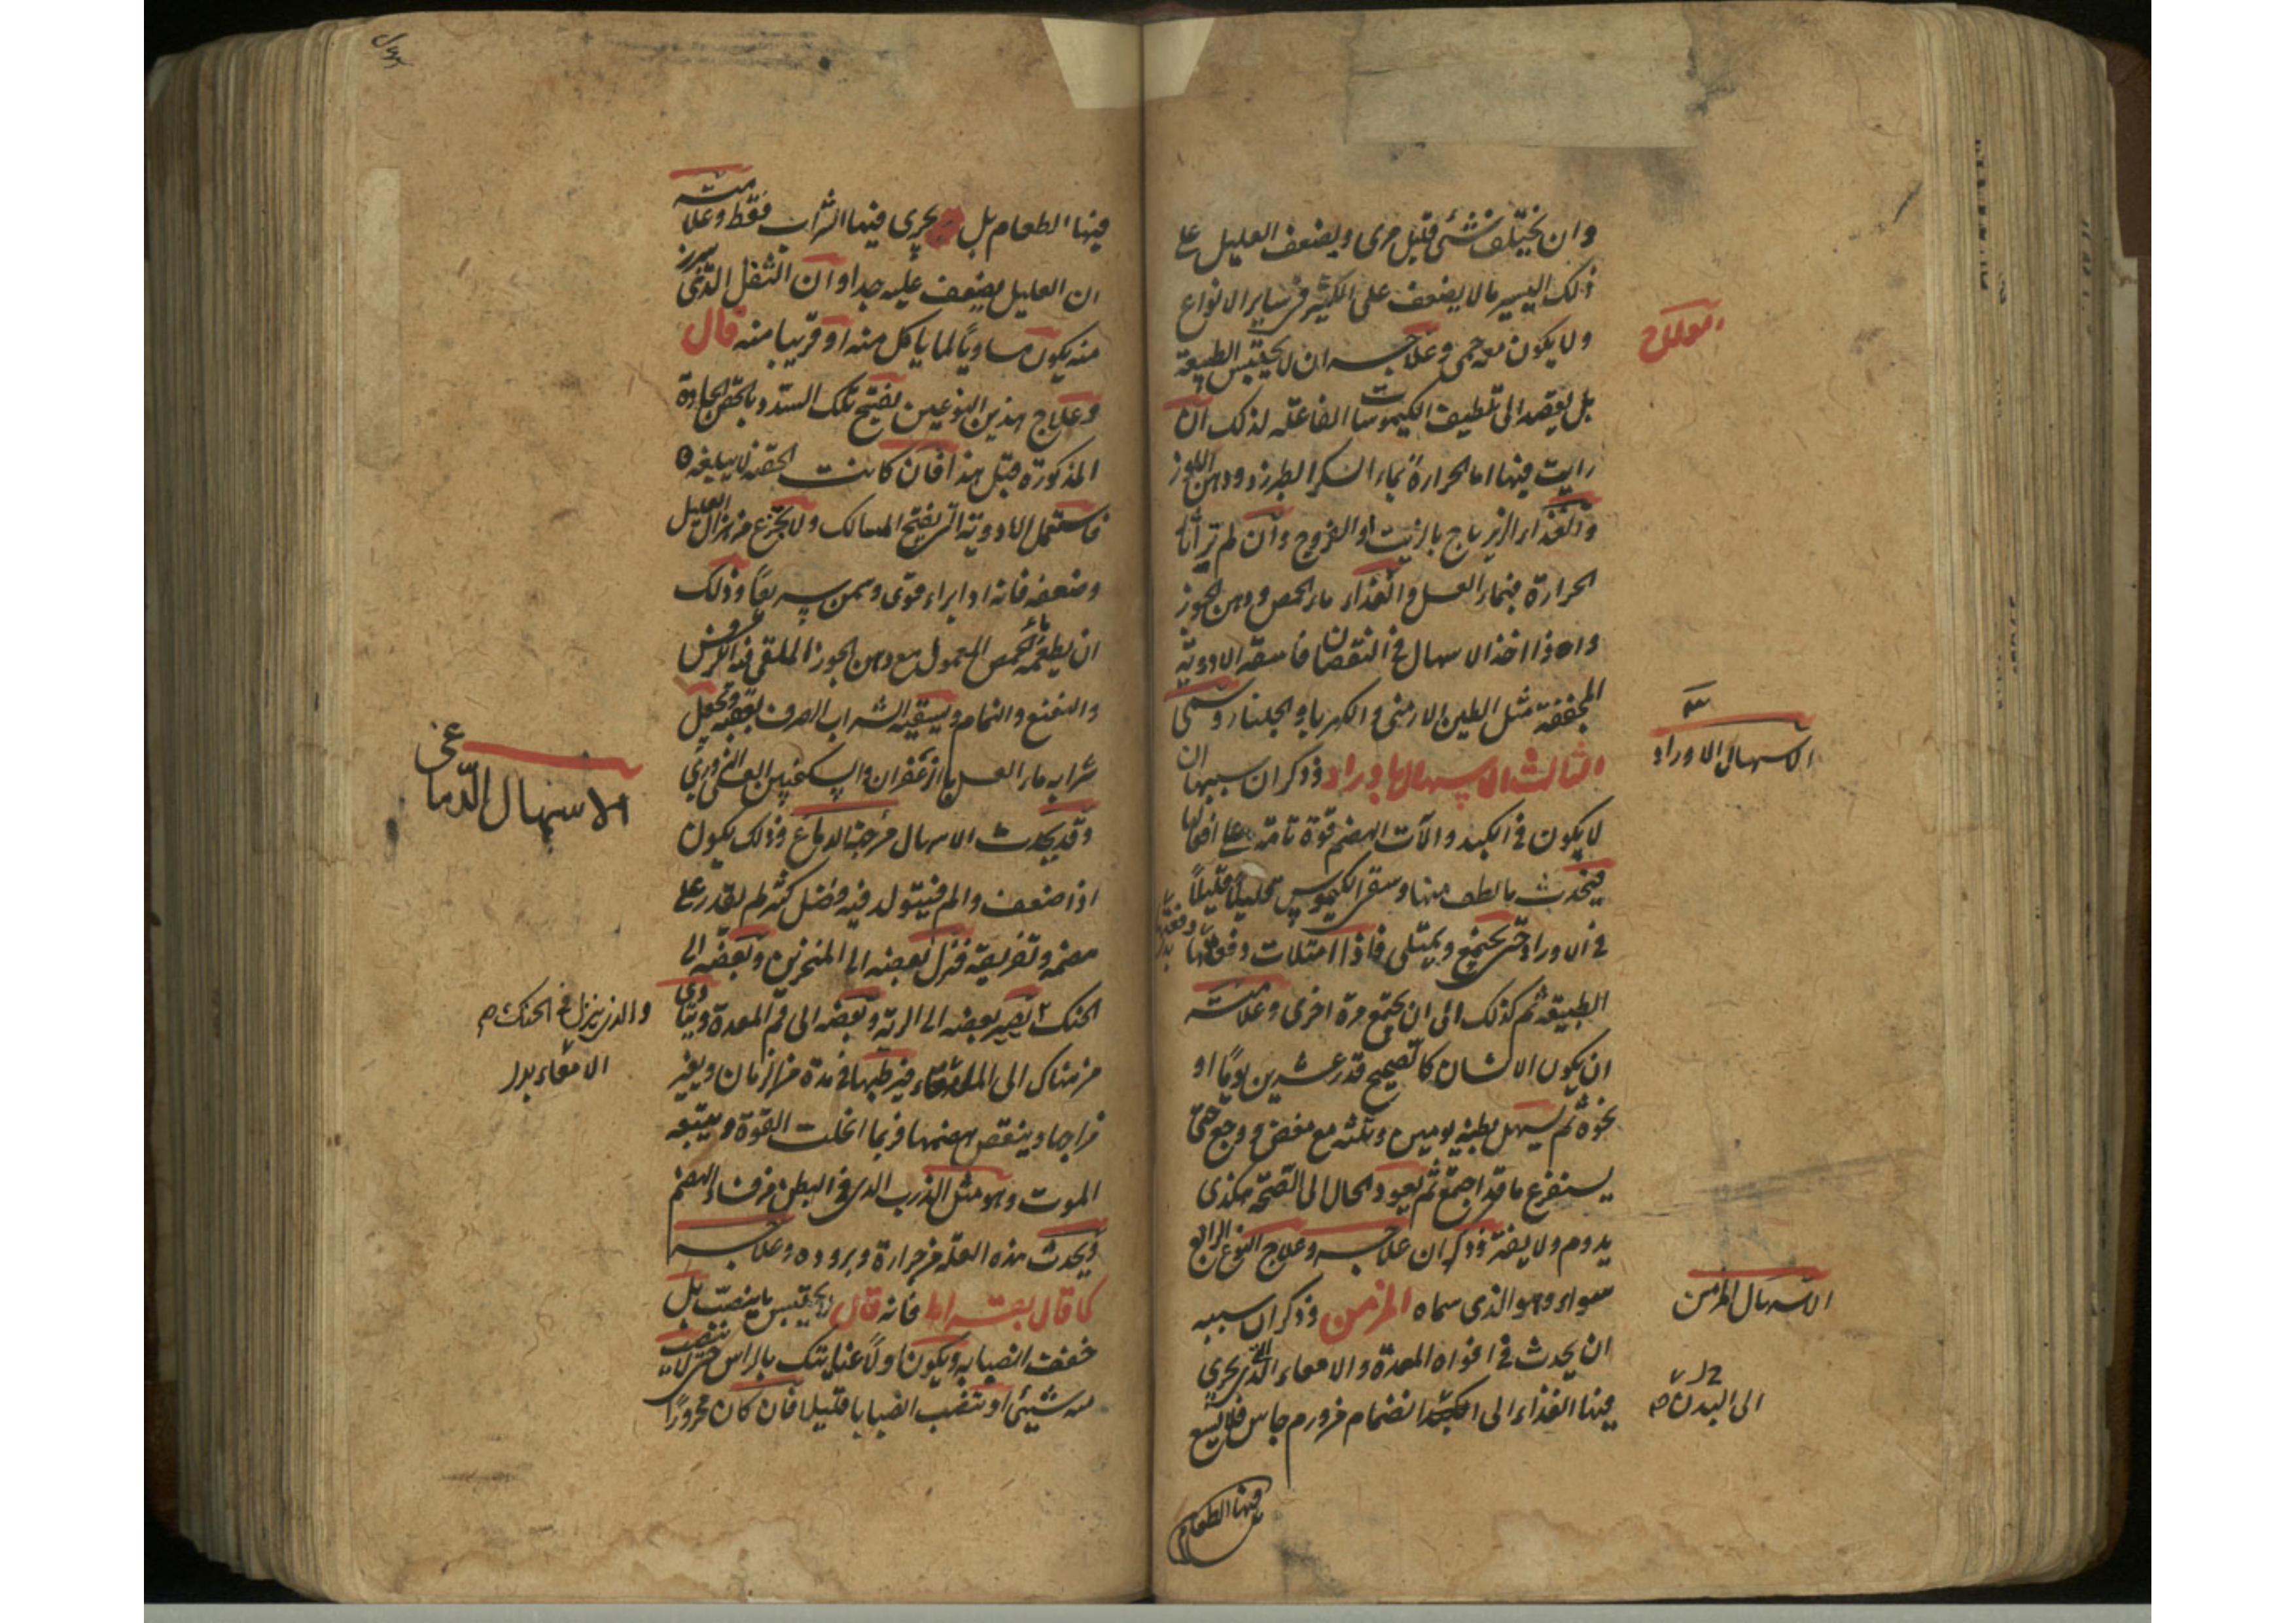 وان يختلف شئ قليل مرى ويضعف العليل على
ذلك اليسير مالا يضعف على الكثير فى ساير الانواع
ولا يكون معه حمى وعلاجه ان لا يحتبس الطبيعة
العلاج
بل يقصد الى تلطيف الكيموسات الفاعلة لذلك ان
رايت فيها اما الحرارة بماء السكر الطبرزد ودهن اللوز
والغذاء الزيرباج بالزيت او الفروج وان لم تر اثار
الحرارة فبماء العسل والغذاء ماء الحمص ودهن الجوز
واذا اخذ الاسهال فى النقصان فاسقه الادوية
المجففة مثل الطين الارمنى والكهربا والجلنار
الثالث الاسهال باوراد وذكر ان سببها ان
الاسهال الاوراد
لا يكون فى الكبد والآت الهضم قوة تامة على افعالها
فيحدث بالطف منها الكيموس قليلاً قليلاً
فى الاوراد حتى يجتمع ويمتلى فاذا امتلات دفعتها
الطبيعة ثم كذلك الى ان يجتمع مرة اخرى وعلامته
ان يكون الانسان كالصحيح قدر عشرين يومًا او
نحوه ثم يسهل بطنه يومين وثلثه مع مغص ووجع حتى
يستفرغ ما قد اجتمع ثم يعود الحال الى الصحة هكذى
يدوم ولا يفتر وذكر ان علاجه وعلاج النوع الرابع
سواء وهو الذى سماه المزمن وذكر ان سببه
الاسهال المزمن
ان يحدث فى افواه المعدة والامعاء التى يجرى
فيها الغذاء الى الكبد انضمام من ورم جاس فلا يسع
الى البدن
فيها الطعام
فيها الطعام بل يجرى فيها الشراب فقط وعلامته
ان العليل يضعف عليه جدا وان الثفل الذى يبرز
منه يكون مساويًا لما ياكل منه او قريبا منه قال
وعلاج هذين النوعين بفتح تلك السدد بالحقن الحادة
المذكورة قبل هذا فان كانت الحقنة لا يبلغه
فاستعمل الادوية التى يفتح المسالك ولا يجزع من هزال العليل
وضعفه فانه اذا براء قوى وسمن سريعًا وذلك
ان يطعمه ماء الحمص المعمول مع دهن الجوز الملقى فيه الكرفس
والنعنع والنمام ويسقيه الشراب الصرف بعقبه ويجعل
شرابه ماء العسل بالزعفران والسكنجبين العسلى البزورى
وقد يحدث الاسهال من جهة الدماغ وذلك يكون
الاسهال الدماغى
اذا ضعف والم فيتولد فيه فضل كثير لم يقدر على
هضمه وتفريقه فنزل بعضه الى المنخرين وبعضه الى
الحنك يصير بعضه الى الرئة وبعضه الى فم المعدة ويتادى
والذى ينزل فى الحنك
من هناك الى الامعاء فيرطبها فى مدة من الزمان ويغير
الامعاء بدل
مزاجها وينقص هضمها فربما انحلت القوة ويتبعه
الموت وهو مثل الذرب الذى فى البطن من فساد الهضم
ويحدث هذه العلة من حرارة وبروده وعلاجه
كما قال بقراط فانه قال لا يحتبس ما ينصب بل
خفف انصبابه ويكون اولاً عنايتك بالراس حتى لا ينصب
منه شيئ او ينصب انصبابا قليلا فان كان محرورًا